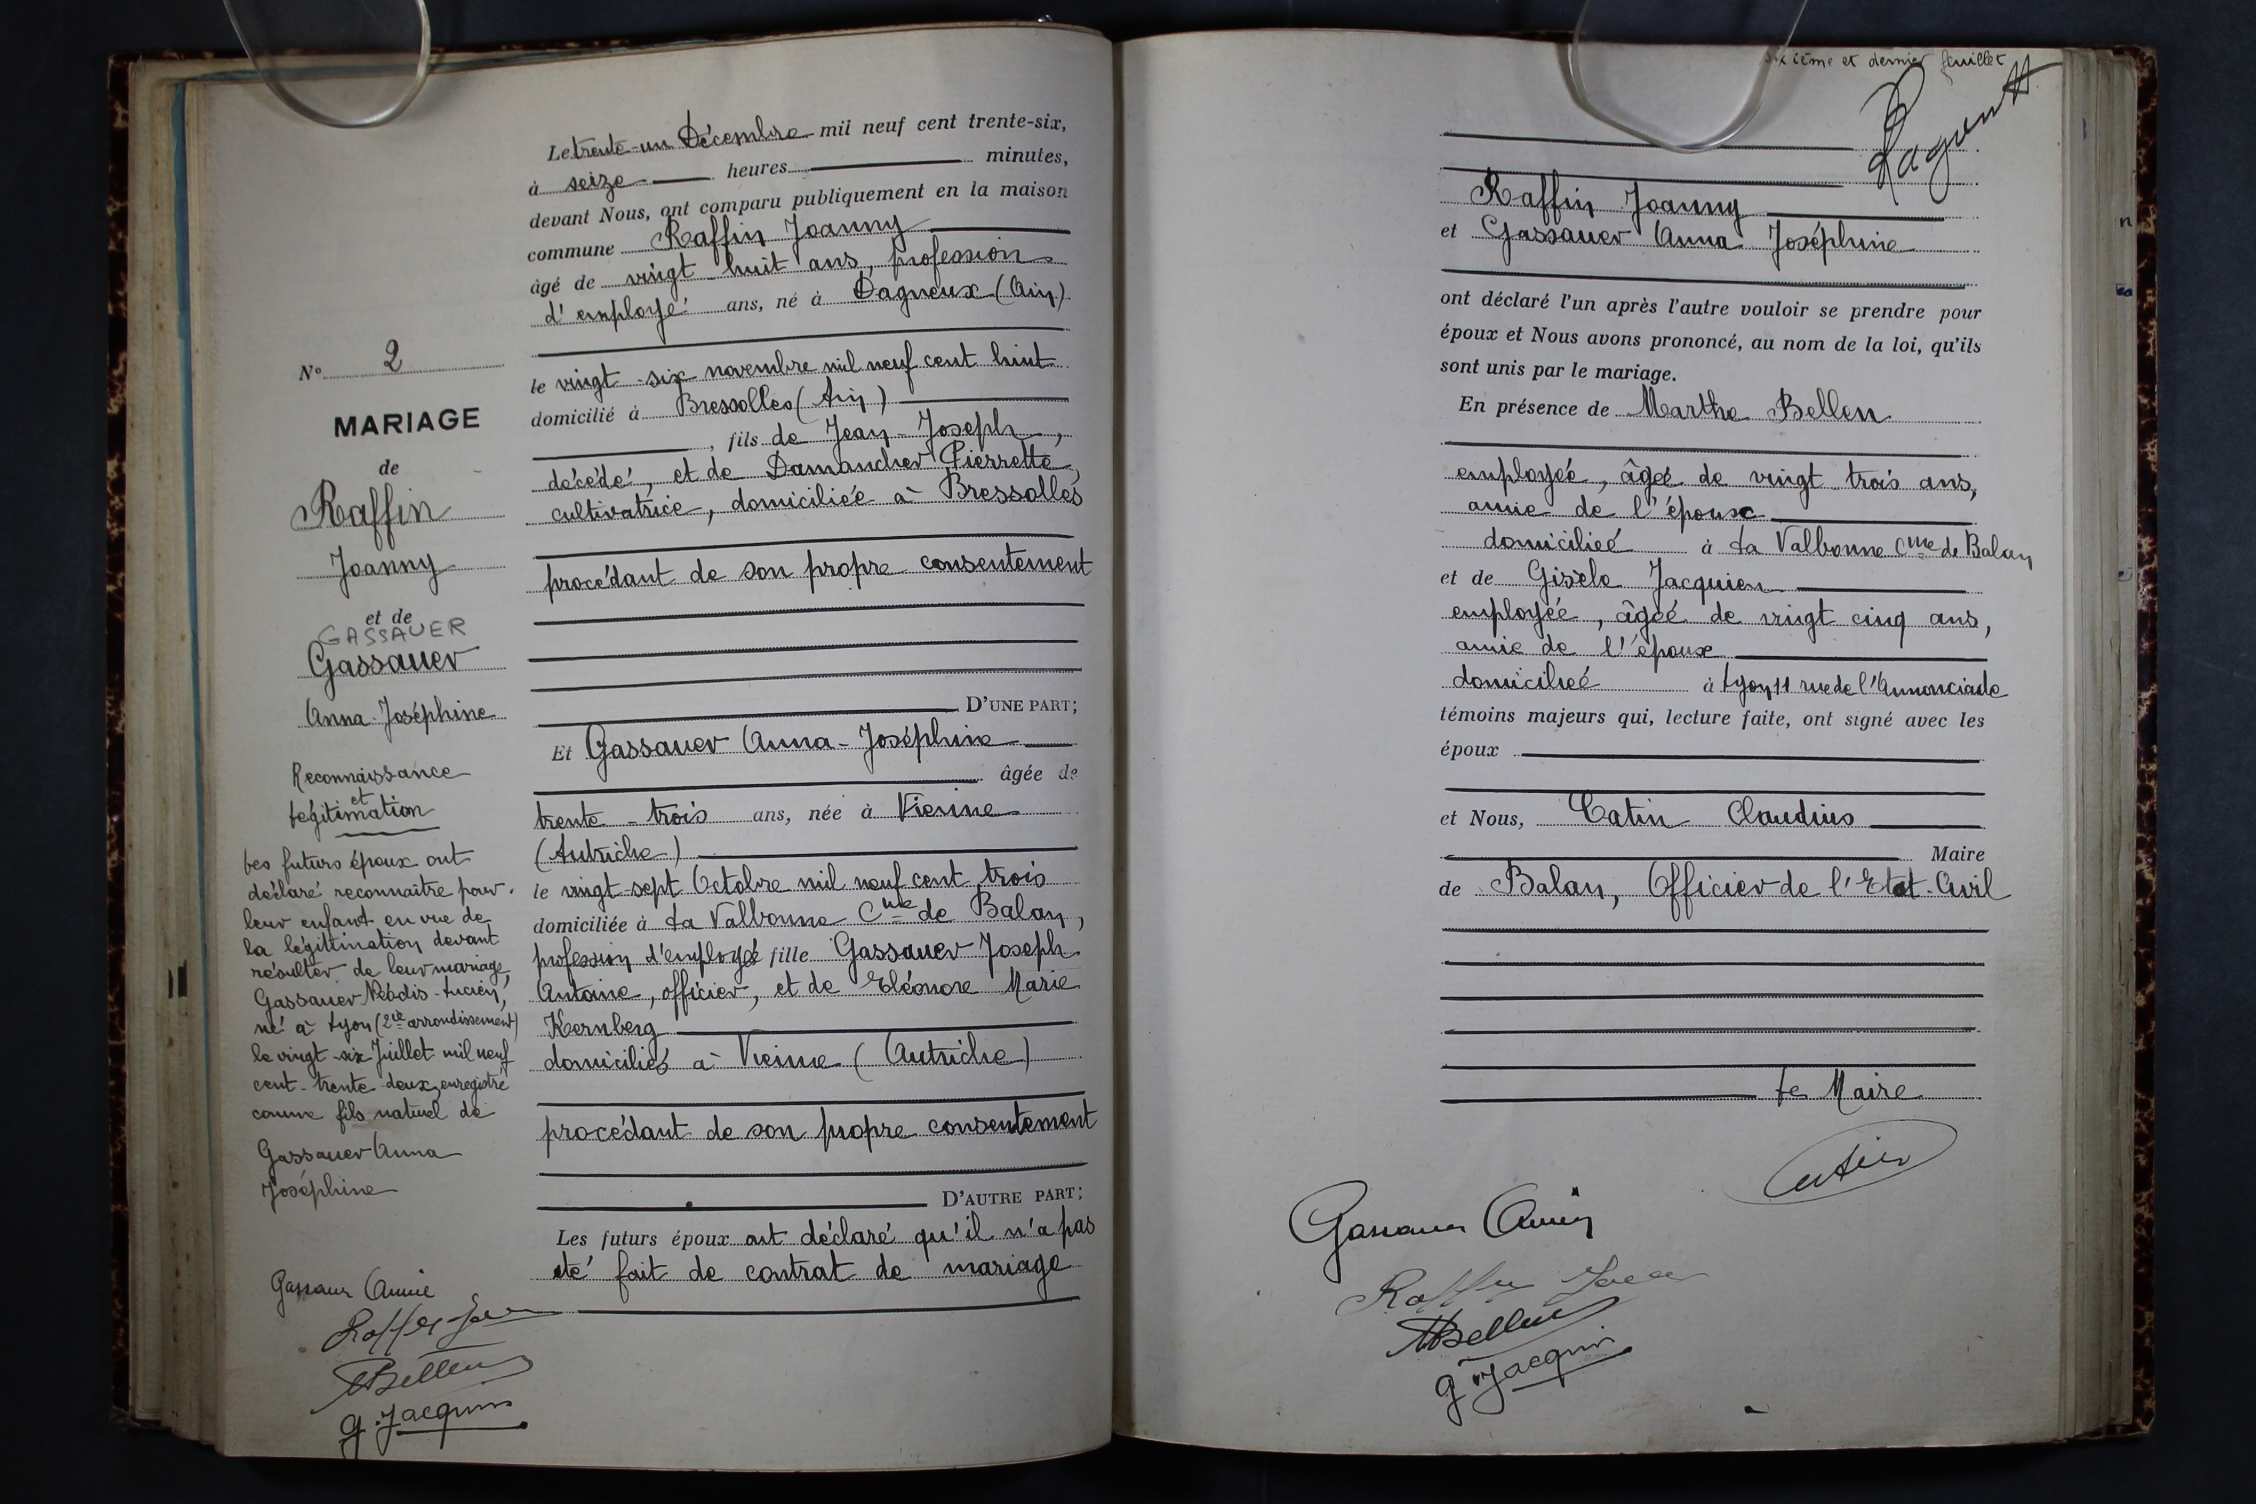 Le trente-un Décembre mil neuf cent trente-six,
à seize heures minutes,
devant Nous, ont comparu publiquement en la maison
commune Raffin Joanny
âgé de vingt huit ans, profession
d'employé ans, né à Dagneux (Ain)
le vingt-six novembre mil neuf cent huit
domicilié à Bressolles (Ain)
, fils de Jean-Joseph,
décédé, et de Damancher Pierrette,
cultivatrice, domiciliée à Bressolles
procédant de son propre consentement
D'UNE PART;
Et Gassauer Anna-Joséphine
âgée de
trente-trois ans, née à Vienne
(Autriche)
le vingt-sept Octobre mil neuf cent trois
domiciliée à La Valbonne Cne de Balan,
profession d'employé fille Gassauer Joseph
Antoine, officier, et de Eléonore Marie
Kernberg
domiciliés à Vienne (Autriche)
procédant de son propre consentement
D'AUTRE PART;
Les futurs époux ont déclaré qu'il n'a pas
été fait de contrat de mariage
N° 2
MARIAGE
de
Raffin
Joanny
et de
GASSAUER
Gassauer
Anna-Joséphine
Reconnaissance
et
Légitimation
Les futurs époux ont
déclaré reconnaître pour
leur enfant en vue de
la légitimation devant
résulter de leur mariage,
Gassauer Lucien,
né à Lyon (2ue arrondissement)
le vingt-six Juillet mil neuf
cent-trente-deux, enregistré
comme fils naturel de
Gassauer Anna
Joséphine
Gassauer Annie
Raffin
MBellen
G. Jacquin
sixième et dernier feuillet
Raffin Joanny
et Gassauer Anna Joséphine
ont déclaré l'un après l'autre vouloir se prendre pour
époux et Nous avons prononcé, au nom de la loi, qu'ils
sont unis par le mariage.
En présence de Marthe Bellen
employée, âgée de vingt trois ans,
amie de l'épouse
domiciliée à La Valbonne Cne de Balan
et de Gisèle Jacquien
employée, âgée de vingt cinq ans,
amie de l'époux
domiciliée à Lyon 11 rue de l'Annonciade
témoins majeurs qui, lecture faite, ont signé avec les
époux
et Nous, Catin Claudius
Maire
de Balan, Officier de l'Etat-Civil
Le Maire
Catin
Gassauer Annie
Raffin
MBellen
G. Jacquin